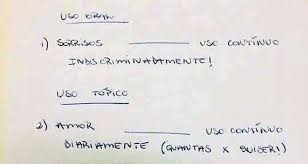 USO ORAL
1) SORRISOS ________ USO CONTÍNUO
INDISCRIMINADAMENTE!
USO TÓPICO
2) AMOR ________ USO CONTÍNUO
DIARIAMENTE (QUANTAS X QUISER!)